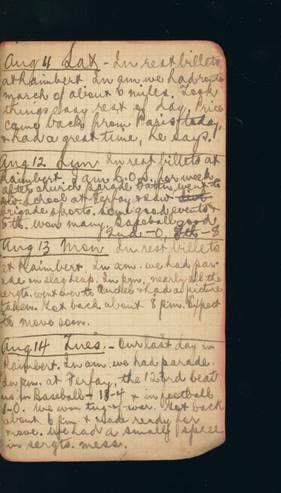 Aug 4 Sat - In rest billets
at Raimbert. In am we had route
march of about 6 miles. Took
things easy rest of day. Price
came back from Paris today,
& had a great time, he says.
Aug 12 Sun In rest billets at
Raimbert. I am B.O.S. for week
after church parade battn. went to
school at Ferfay & saw
brigade sports. Some good events &
5th. won many. Baseball good
2nd - 0, 8th - 8
Aug 13 Mon In rest billets
at Raimbert. In a.m. we had par-
ade on slag heap. In p.m. nearly all the
sergts. went over to Auchel & had a picture
taken. Got back about 8 p.m. Expect
to move soon.
Aug 14 Tues. - Our last day in
Raimbert. In am we had parade.
In p.m. at Ferfay, the 123rd beat
us in Baseball - 18-4 & in football
1-0. We won tug-of-war. Got back
about 6 p.m. & made ready for
move. We had a small spree
in sergts. mess.